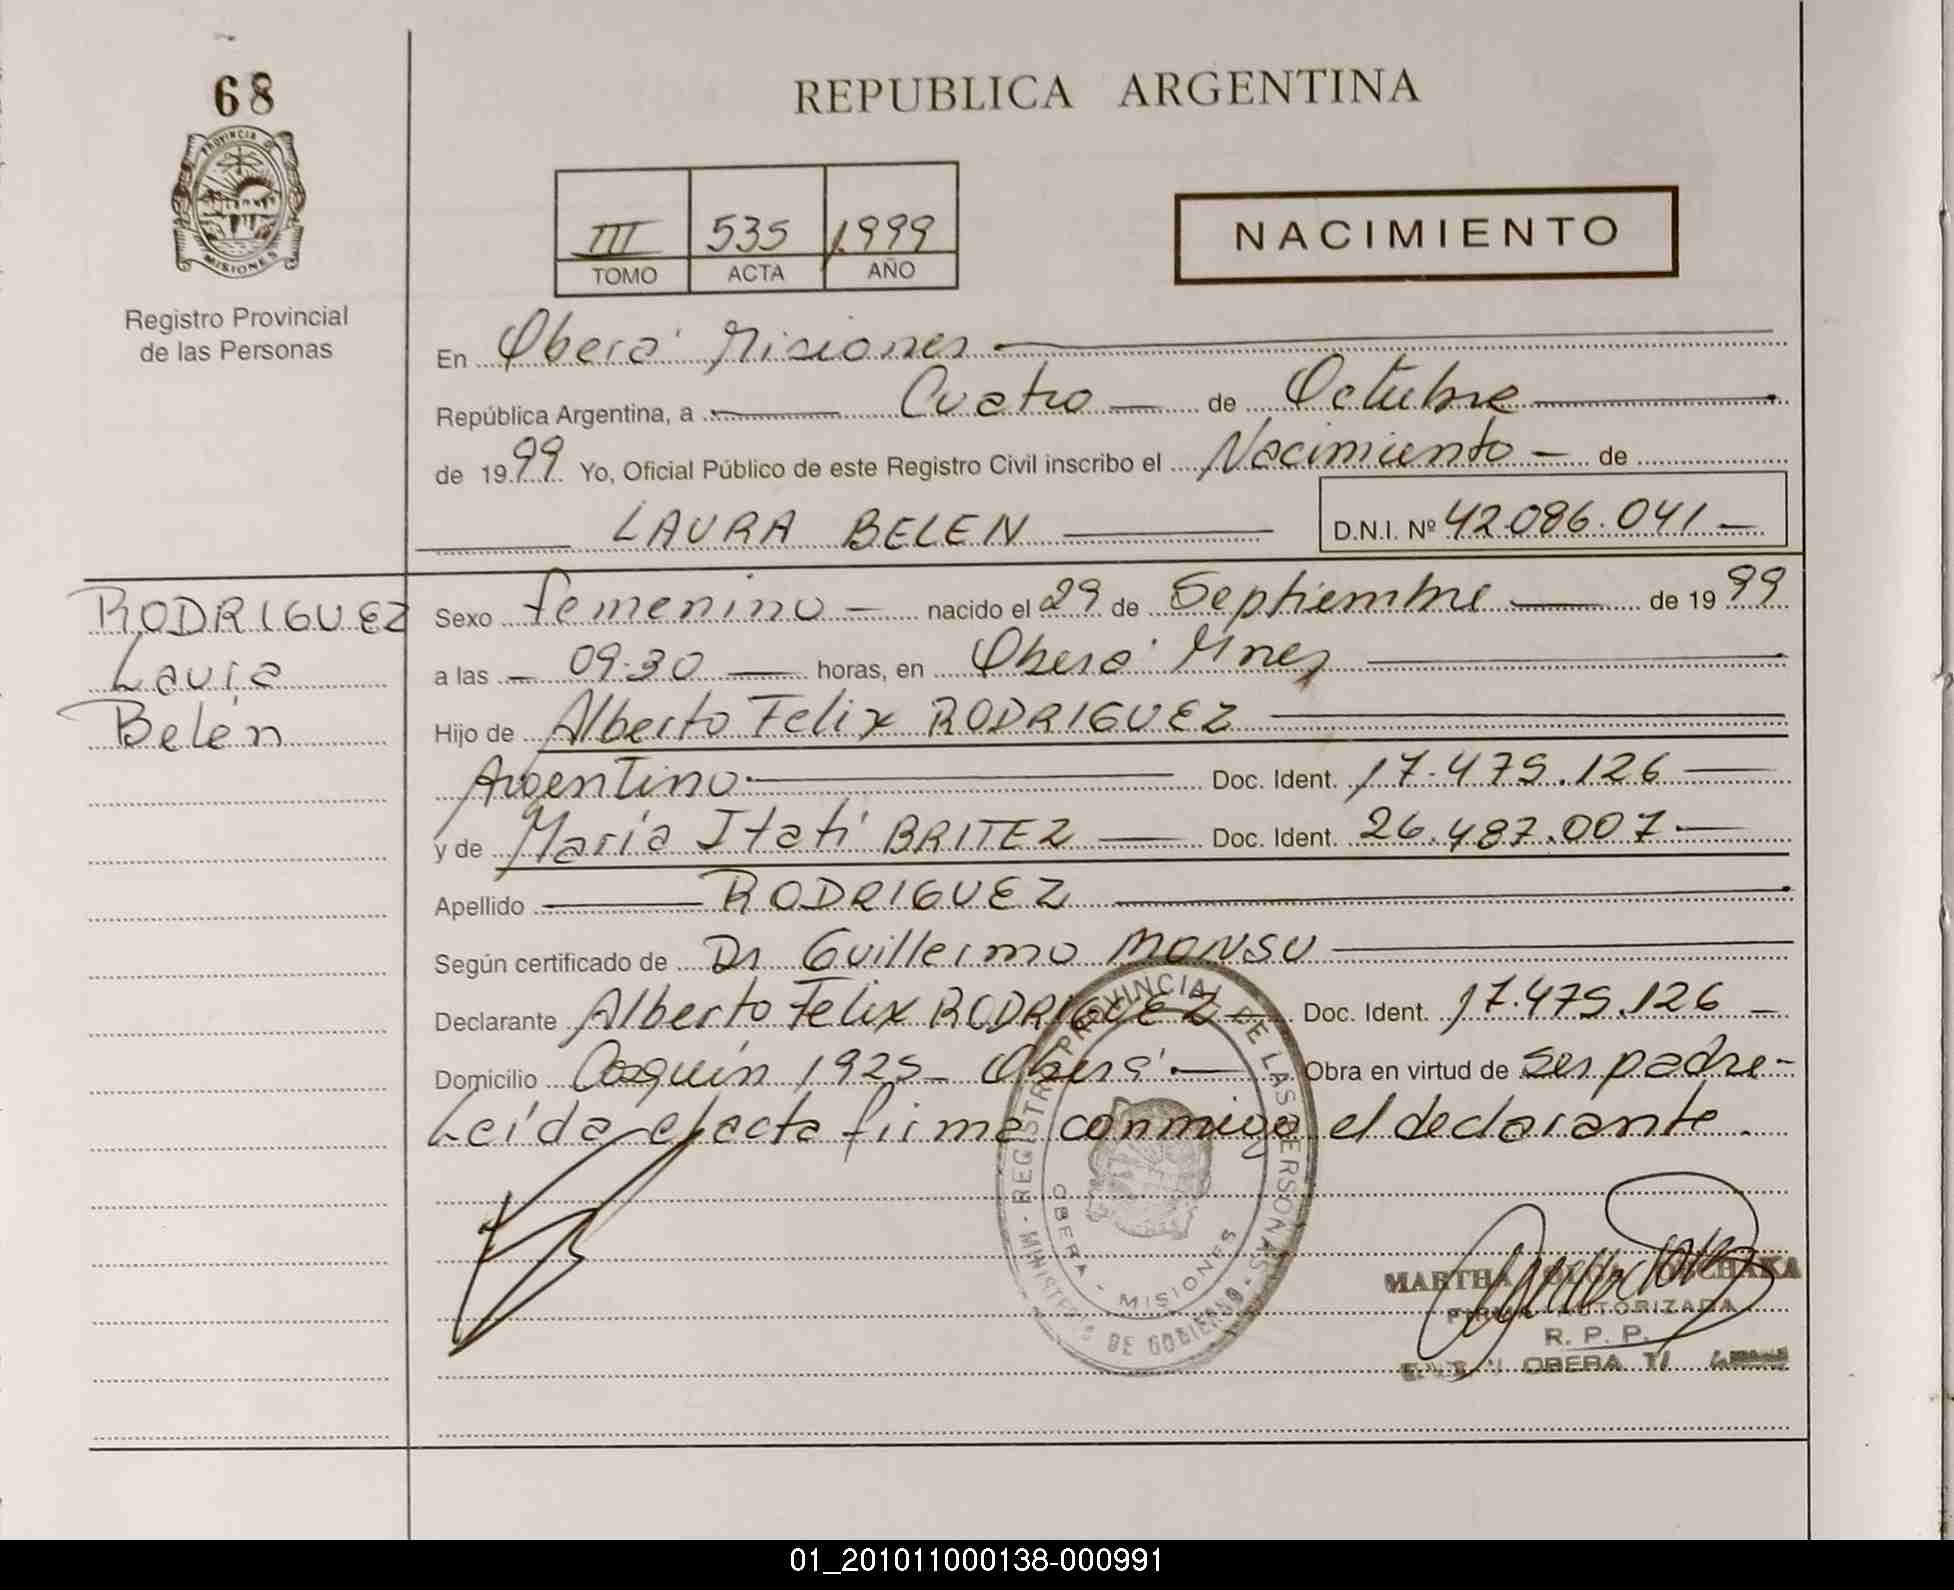 68
PROVINCIA D
MISIONES
Registro Provincial
de las Personas
REPUBLICA ARGENTINA
III 535 1999
TOMO ACTA AÑO
NACIMIENTO
En Oberá Misiones
República Argentina, a Cuatro de Octubre
de 1999 Yo, Oficial Público de este Registro Civil inscribo el Nacimiento de
LAURA BELEN D.N.I. Nº 42.086.041
RODRIGUEZ
Laura
Belén
Sexo femenino nacido el 29 de Septiembre de 1999
a las 09.30 horas, en Oberá Mnes
Hijo de Alberto Felix RODRIGUEZ
Argentino Doc. Ident. 17.475.126
y de María Itatí BRITEZ Doc. Ident. 26.487.007
Apellido RODRIGUEZ
Según certificado de Dr Guillermo MONSU
Declarante Alberto Felix RODRIGUEZ Doc. Ident. 17.475.126
Domicilio Cosquín 1925 Oberá Obra en virtud de ser padre
Leída el acta firma conmigo el declarante.
REGISTRO PROVINCIAL DE LAS PERSONAS - MINISTERIO DE GOBIERNO
OBERA - MISIONES
MARTHA
FIRMA AUTORIZADA
R. P. P.
OBERA
01_201011000138-000991